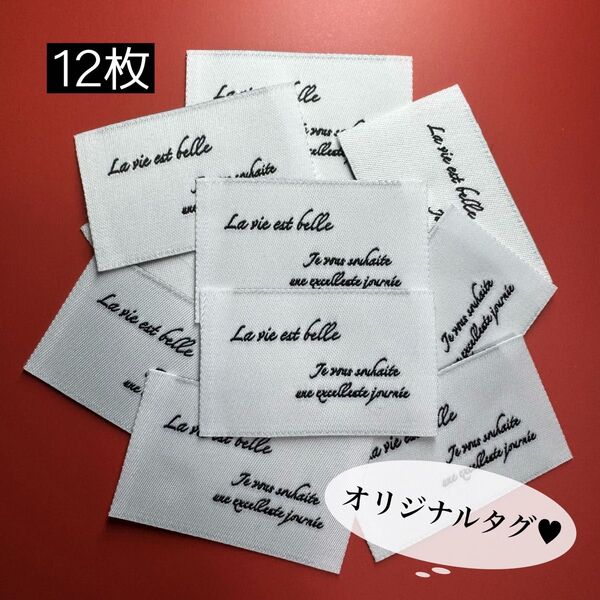 12枚
La vie est belle
Je vous
La vie est belle
souhaite
une
La vie est belle
La vie est belle
Je vous souhaite
une excellente journée
La vie est belle
Je vous souhaite
une excellente journée
Je vous souhaite
une excellente journée
La vie
La vie est belle
Je vous souhaite
une excellente journée
La vie est belle
Je vous souhaite
une excellente journée
オリジナルタグ♥